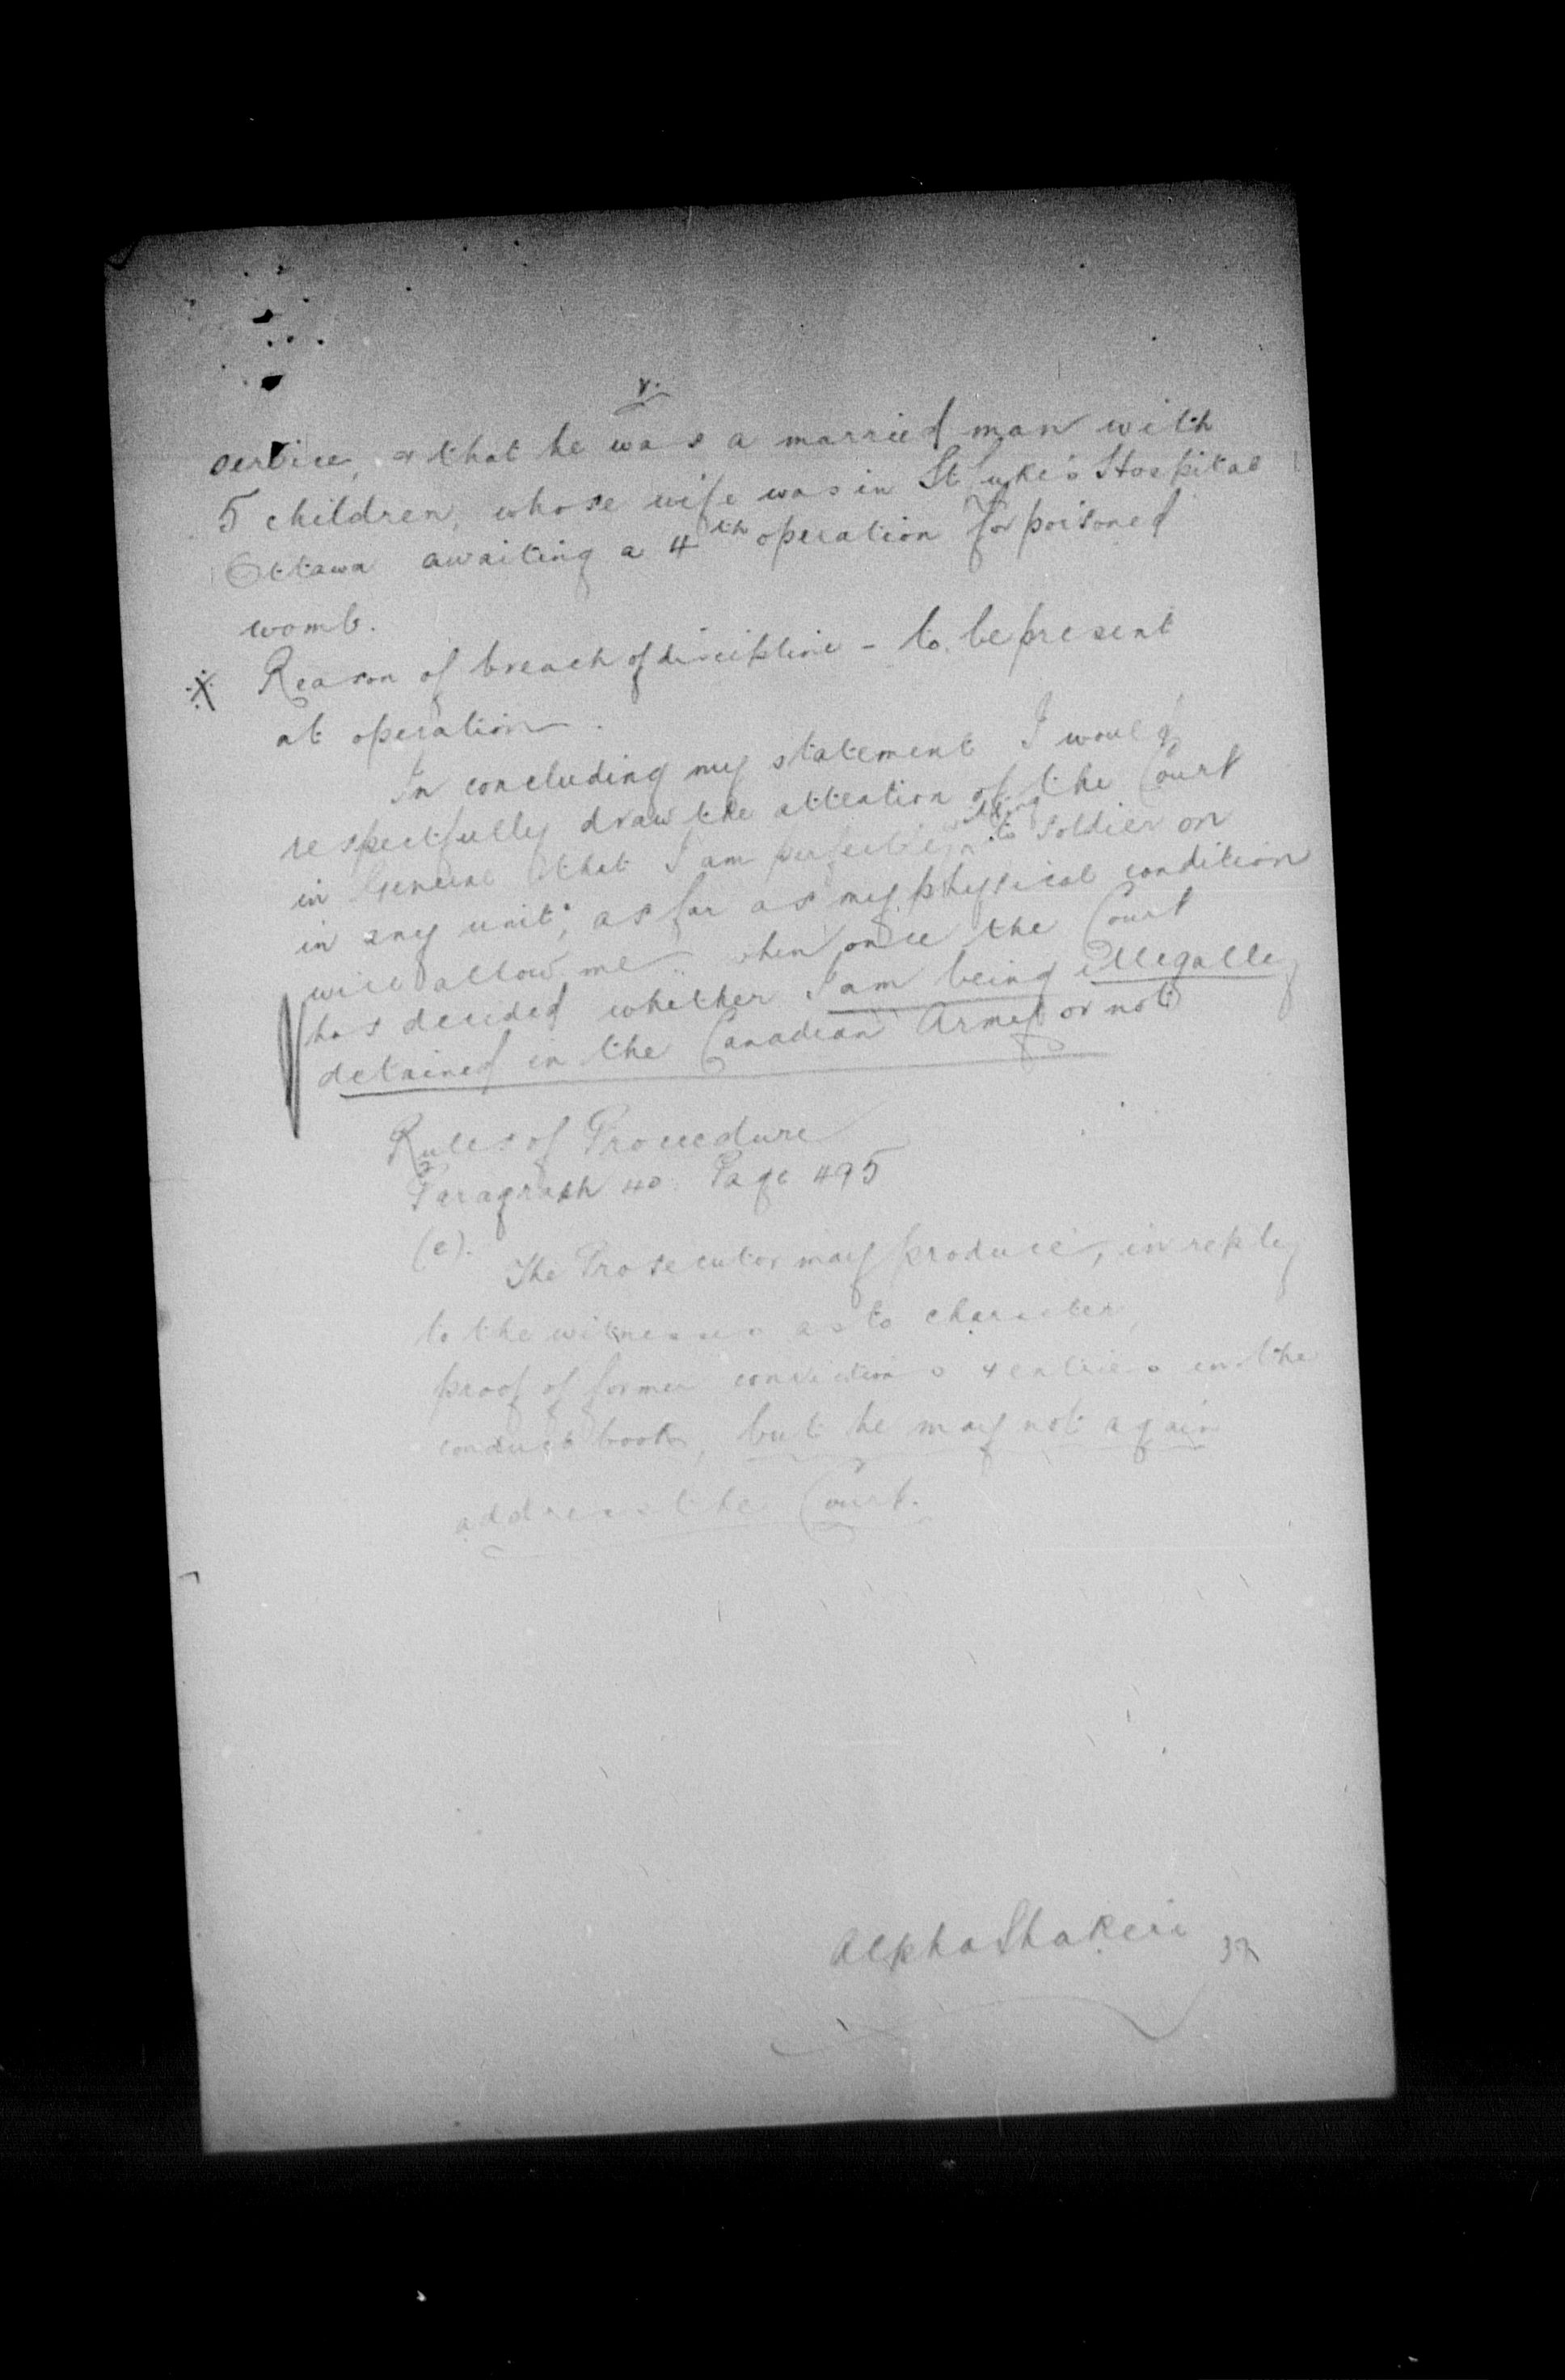 v.
service, & that he was a married man with
5 children, whose wife was in St Luke's Hospital
Ottawa awaiting a 4th operation for poisoned
womb.
Reason of breach of discipline - to be present
at operation.
In concluding my statement I would
respectfully draw the attention of the Court
in General that I am perfectly willing to soldier on
in any unit, as far as my physical condition
will allow me when once the Court
has decided whether I am being illegally
detained in the Canadian Army or not
Rules of Procedure
Paragraph 40. Page 495
(e).
The Prosecutor may produce, in reply
to the witnesses as to character,
proof of former convictions & entries in the
conduct book, but he may not again
address the Court.
Alpha Shakeir
37